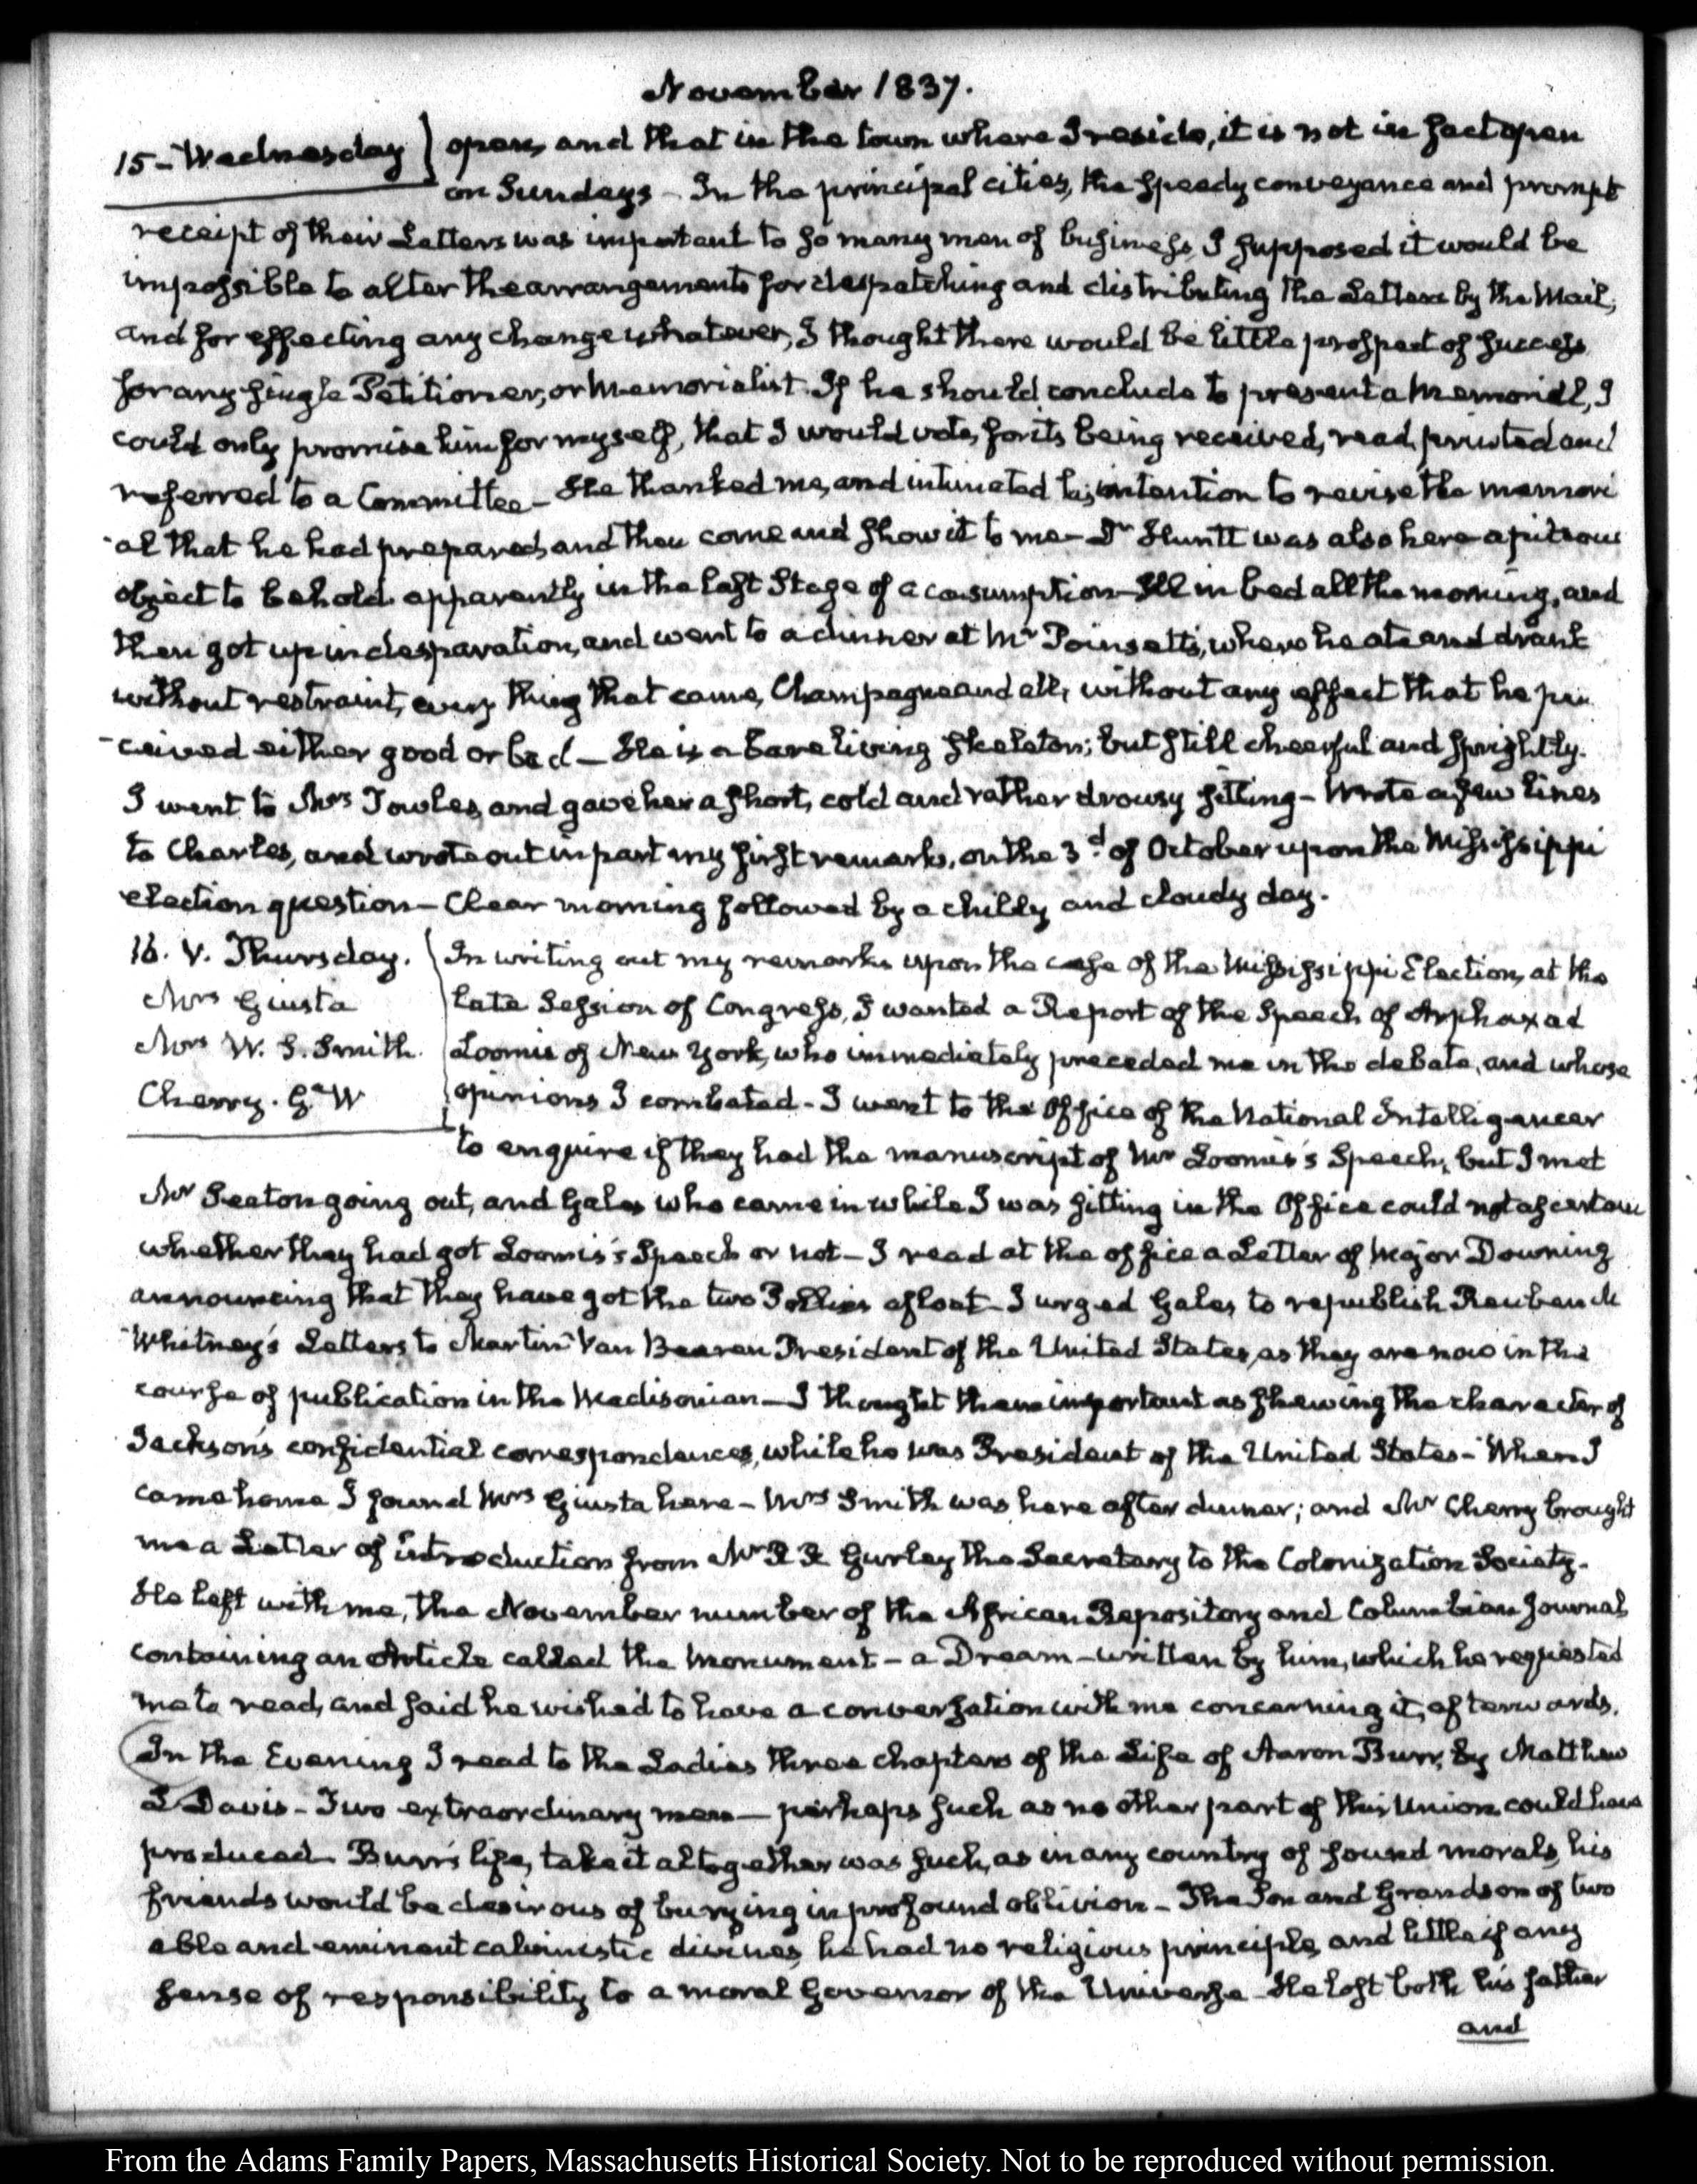 November 1837.
15 - Wednesday
open, and that in the town where I reside, it is not in fact open
on Sundays - In the principal cities, the speedy conveyance and prompt
receipt of their Letters was important to so many men of business, I supposed it would be
impossible to alter the arrangements for despatching and distributing the Letters by the Mail,
and for effecting any change whatever, I thought there would be little prospect of success
for any single Petitioner, or Memorialist. If he should conclude to present a Memorial, I
could only promise him for myself, that I would vote, for its being received, read, printed and
referred to a Committee - He thanked me, and intimated his intention to revise the memori
-al that he had prepared, and then come and show it to me - Dr Huntt was also here a piteous
object to behold apparently in the last stage of a consumption - Ill in bed all the morning, and
then got up in desparation, and went to a dinner at Mr Poinsett's, where he ate and drank
without restraint, every thing that came, Champagne and all, without any effect that he per
-ceived either good or bad - He is a bare living skeleton; but still cheerful and sprightly.
I went to Mrs Towles, and gave her a short, cold and rather drowsy sitting - Wrote a few lines
to Charles, and wrote out in part my first remarks, on the 3d of October upon the Mississippi
election question - Clear morning followed by a chilly and cloudy day.
16. V. Thursday.
Mrs Giusta
Mrs W. S. Smith.
Cherry. Ga W
In writing out my remarks upon the case of the Mississippi Election, at the
late Session of Congress, I wanted a Report of the Speech of Arphaxad
Loomis of New York, who immediately preceded me in the debate, and whose
opinions I combated - I went to the Office of the National Intelligencer
to enquire if they had the manuscript of Mr Loomis's Speech, but I met
Mr Seaton going out, and Gales who came in while I was sitting in the Office could not ascertain
whether they had got Loomis's Speech or not - I read at the office a Letter of Major Downing
announcing that they have got the two Pollies afloat - I urged Gales to republish Reuben M
Whitney's Letters to Martin Van Beuren President of the United States, as they are now in the
course of publication in the Madisonian - I thought them important as shewing the character of
Jackson's confidential correspondences, while he was President of the United States - When I
came home I found Mrs Giusta here - Mrs Smith was here after dinner; and Mr Cherry brought
me a Letter of introduction from Mr R R Gurley the Secretary to the Colonization Society.
He left with me, the November number of the African Repository and Columbian Journal
containing an Article called the Monument - a Dream - written by him, which he requested
me to read, and said he wished to have a conversation with me concerning it, afterwards.
In the Evening I read to the Ladies three chapters of the Life of Aaron Burr, by Matthew
L Davis - Two extraordinary men - perhaps such as no other part of this Union could have
produced Burr's life, take it altogether was such, as in any country of sound morals, his
friends would be desirous of burying in profound oblivion - The Son and Grandson of two
able and eminent calvinistic divines, he had no religious principle, and little if any
sense of responsibility to a moral Governor of the Universe - He lost both his father
and
From the Adams Family Papers, Massachusetts Historical Society. Not to be reproduced without permission.